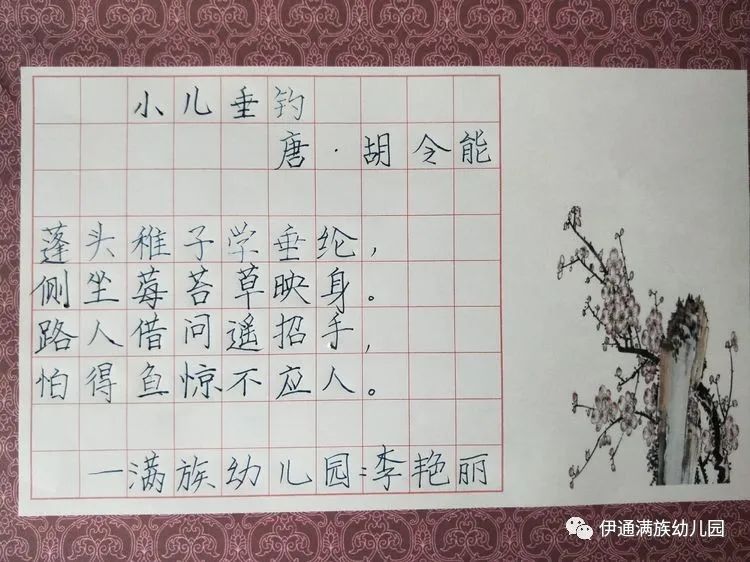 小儿垂钓
唐·胡令能
蓬头稚子学垂纶，
侧坐莓苔草映身。
路人借问遥招手，
怕得鱼惊不应人。
一满族幼儿园：李艳丽
伊通满族幼儿园